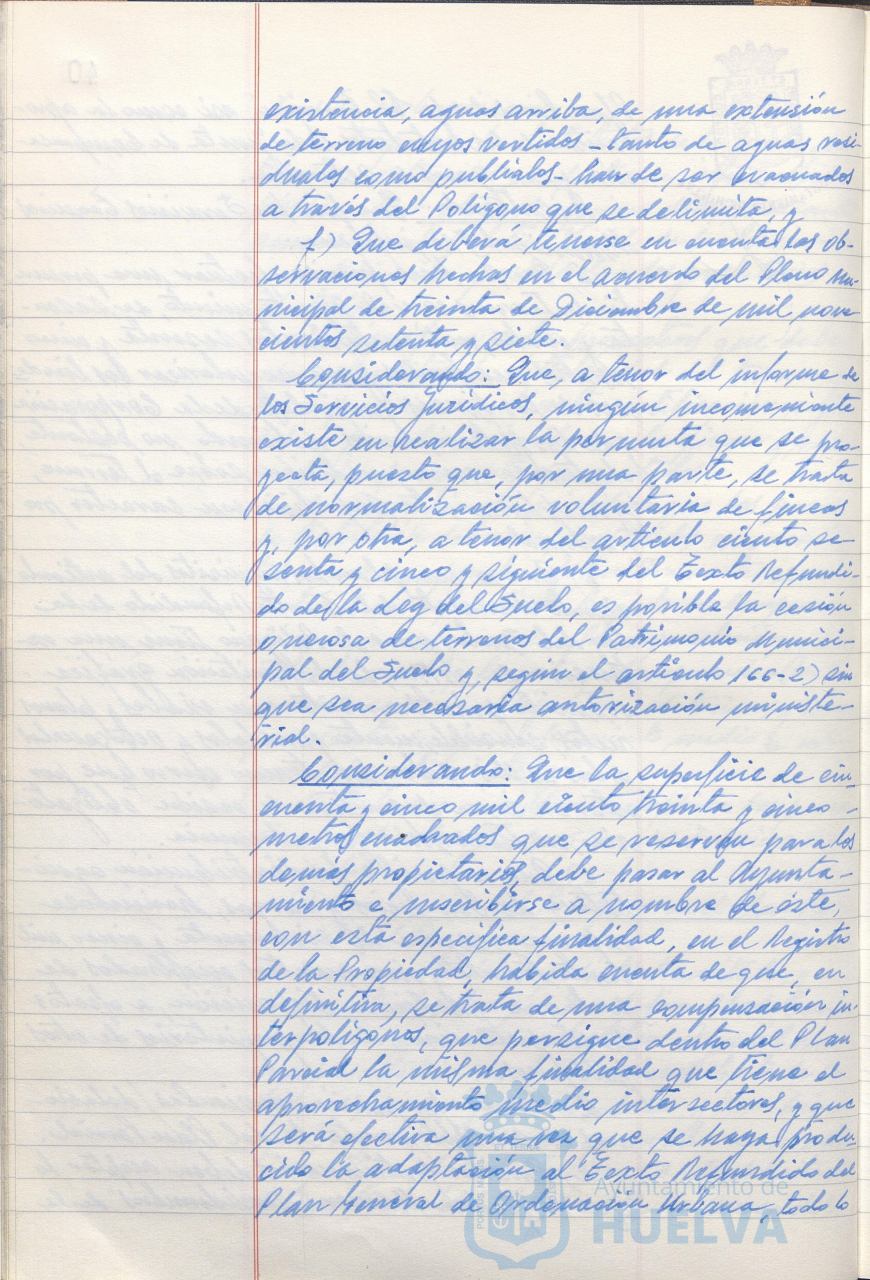 existencia, aguas arriba, de una extensión
de terreno cuyos vertidos - tanto de aguas resi-
duales como publiales - han de ser evacuados
a través del Polígono que se delimita, y
f) Que deberá tenerse en cuenta las ob-
servaciones hechas en el acuerdo del Pleno mu-
nicipal de treinta de Diciembre de mil nove
cientos setenta y siete.
Considerando: Que, a tenor del informe de
los Servicios Jurídicos, ningún inconveniente
existe en realizar la permuta que se pro-
yecta, puesto que, por una parte, se trata
de normalización voluntaria de fincas
y, por otra, a tenor del artículo ciento se-
senta y cinco y siguiente del Texto Refundi-
do de la Ley del Suelo, es posible la cesión
onerosa de terrenos del Patrimonio Munici-
pal del Suelo y, según el artículo 166-2) sin
que sea necesaria autorización ministe-
rial.
Considerando: Que la superficie de cin-
cuenta y cinco mil ciento treinta y cinco -
metros cuadrados que se reservan para los
demás propietarios, debe pasar al Ayunta-
miento e inscribirse a nombre de éste,
con esta específica finalidad, en el Registro
de la Propiedad, habida cuenta de que, en
definitiva, se trata de una compensación in-
terpolígonos, que persigue dentro del Plan
Parcial la misma finalidad que tiene el
aprovechamiento medio intersectores, y que
será efectiva una vez que se haya produ-
cido la adaptación al Texto Refundido del
Plan General de Ordenación Urbana, todo lo
Ayuntamiento de
HUELVA